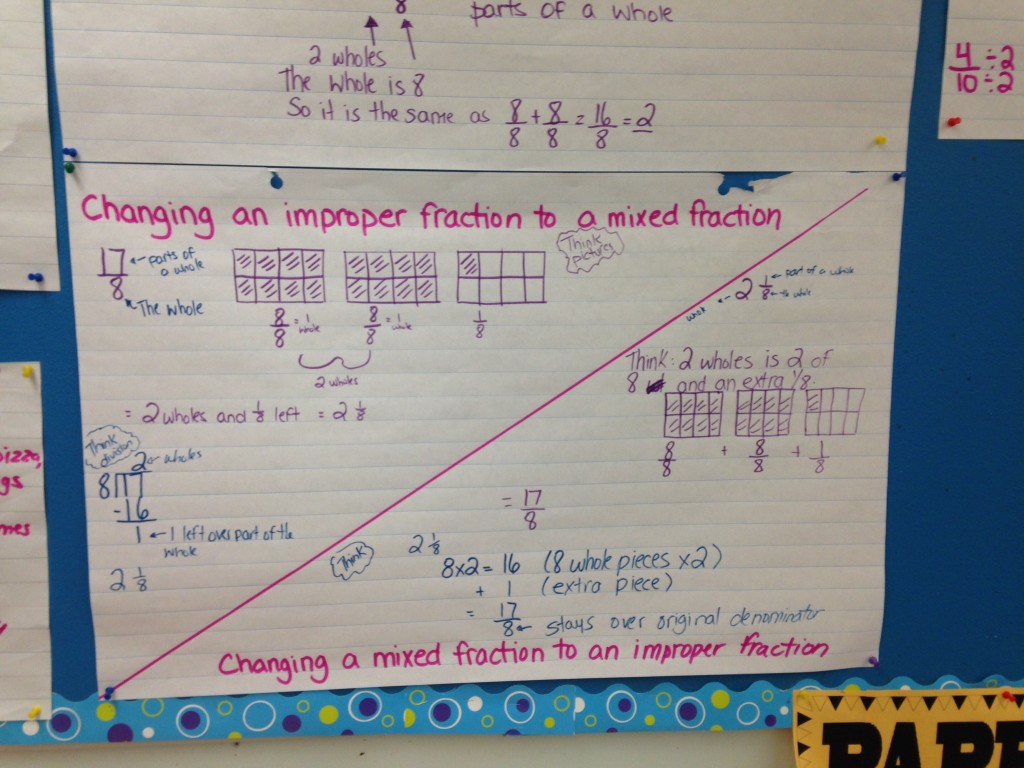 8 parts of a whole
2 wholes
The whole is 8
So it is the same as 8/8 + 8/8 = 16/8 = 2
4/10 ÷2 ÷2
Changing an improper fraction to a mixed fraction
17/8 ← parts of a whole
The whole
Think pictures
8/8 = 1 whole 8/8 = 1 whole 1/8
2 wholes
= 2 wholes and 1/8 left = 2 1/8
Think division
2 ← wholes
8 17
-16
1 ← 1 left over part of the whole
2 1/8
whole ← 2 1/8 ← part of a whole
← the whole
Think: 2 wholes is 2 of
8 and an extra 1/8.
8/8 + 8/8 + 1/8
= 17/8
Think
2 1/8
8x2 = 16 (8 whole pieces x2)
+ 1 (extra piece)
= 17/8 ← stays over original denominator
Changing a mixed fraction to an improper fraction
izza,
gs
mes